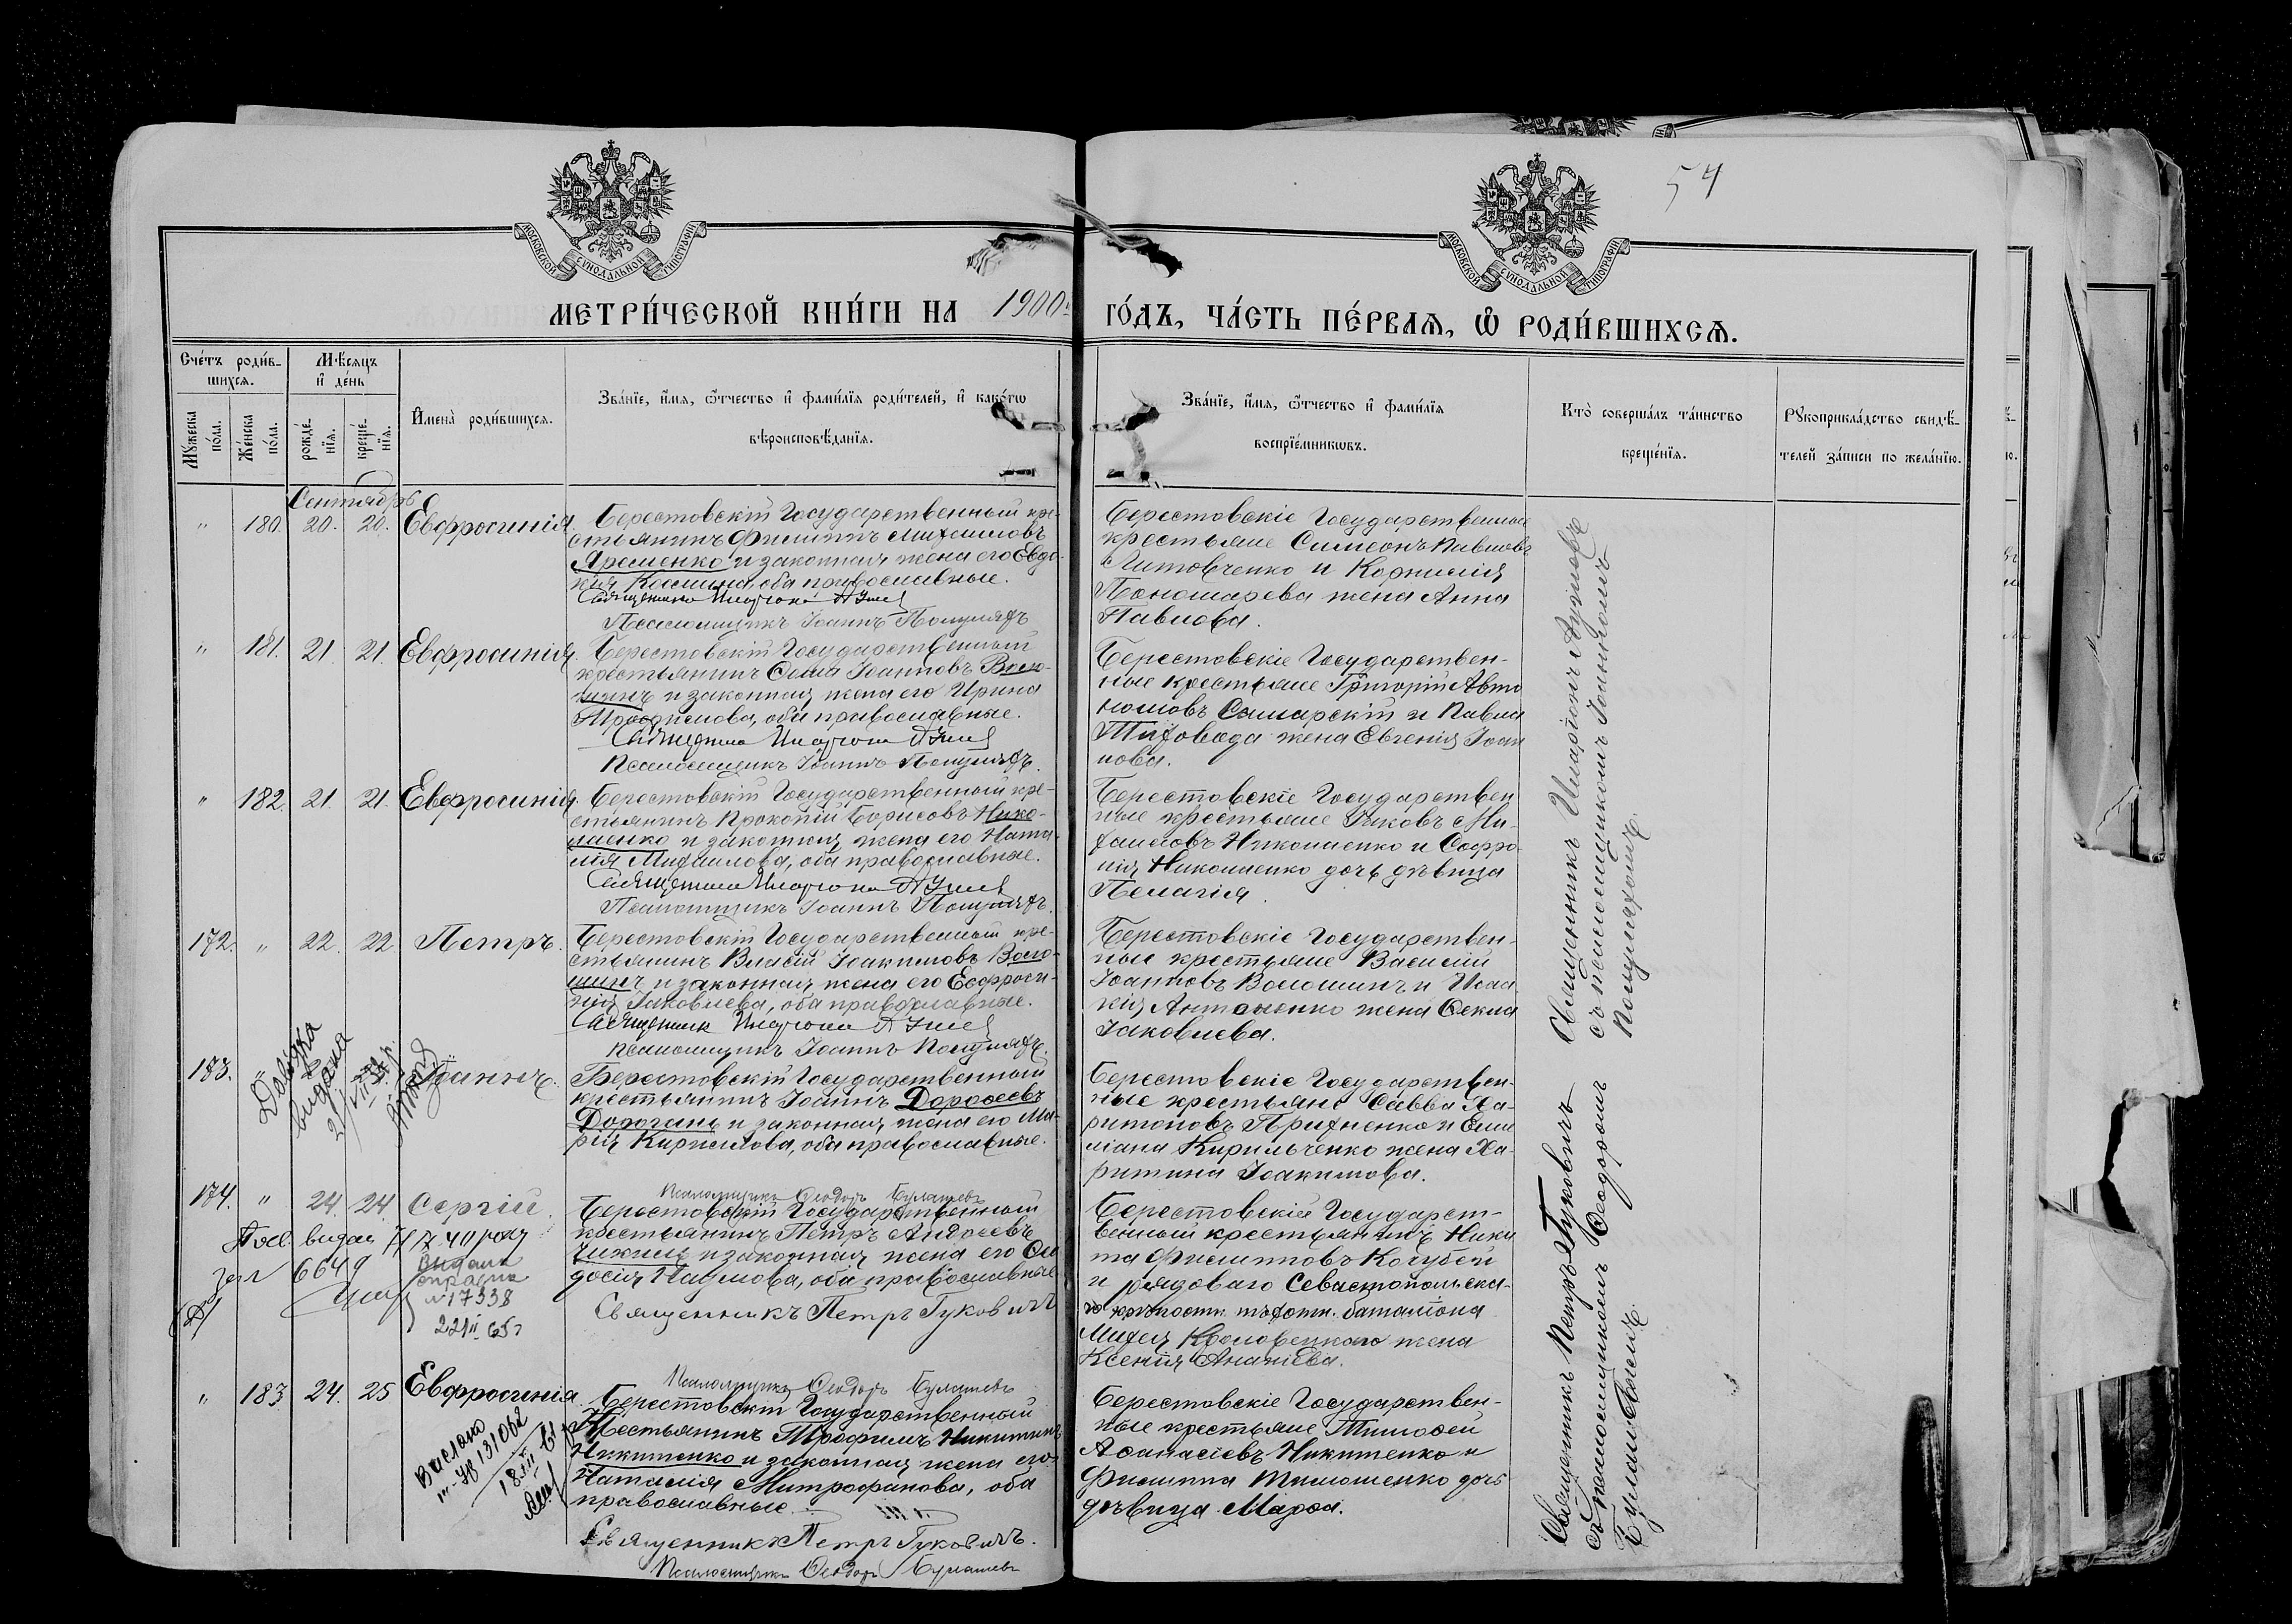 54
МОСКОВСКОЙ СѴНОДАЛЬНОЙ ТИПОГРАФІИ
МОСКОВСКОЙ СѴНОДАЛЬНОЙ ТИПОГРАФІИ
МЕТРИ́ЧЕСКОЙ КНИ́ГИ НА 1900й ГО́ДЪ, ЧА́СТЬ ПЕ́РВАѦ, Ѽ РОДИ́ВШИХСѦ.
Сче́тъ роди́в-
шихсѧ.
Мꙋ́жеска
по́ла.
Же́нска
по́ла.
Мѣ́сѧцъ
и҆ де́нь
рожде́-
нїѧ.
креще́-
нїѧ.
И҆мена̀ роди́вшихсѧ.
Зва́нїе, и҆́мѧ, ѻ҆́тчество и҆ фамі́лїѧ роди́телей, и҆ како́гѡ
вѣроисповѣ́данїѧ.
Зва́нїе, и҆́мѧ, ѻ҆́тчество и҆ фамі́лїѧ
воспрїе́мникѡвъ.
Кто̀ соверша́лъ та́инство
креще́нїѧ.
Рꙋкоприкла́дство свидѣ́-
телей за́писи по жела́нїю.
Сентябрь
" 180. 20. 20. Евфросинія.
Берестовскій Государственный кре-
стьянинъ Филиппъ Михаиловъ
Яременко и законная жена его Евдо-
кія Космина, оба православные.
Священникъ Иларіонъ
Псаломщикъ Іоаннъ Полуляхъ
Берестовскіе Государственные
крестьяне Симеонъ Павловъ
Литовченко и Корнилія
Пономарева жена Анна
Павлова.
" 181. 21. 21. Евфросинія.
Берестовскій Государственный
крестьянинъ Ѳома Іоанновъ Воло-
шинъ и законная жена его Ирина
Трофимова, оба православные.
Священникъ Иларіонъ
Псаломщикъ Іоаннъ Полуляхъ.
Берестовскіе Государствен-
ные крестьяне Григорій Авто
номовъ Самарскій и Павла
Тиховода жена Евгенія Іоан
нова.
" 182. 21. 21. Евфросинія.
Берестовскій Государственный кре-
стьянинъ Прокопій Борисовъ Нико-
лаенко и законная жена его Ната-
лія Михаилова, оба православные.
Священникъ Иларіонъ
Псаломщикъ Іоаннъ Полуляхъ.
Берестовскіе Государствен
ные крестьяне Іаковъ Ми-
хаиловъ Николаенко и Софро-
нія Николаенко дочь дѣвица
Пелагія.
172. " 22. 22. Петръ.
Берестовскій Государственный кре-
стьянинъ Власій Іоакимовъ Воло-
шинъ и законная жена его Евфроси-
нія Іаковлева, оба православные.
Священникъ Иларіонъ
Псаломщикъ Іоаннъ Полуляхъ.
Берестовскіе Государствен-
ные крестьяне Василій
Іоанновъ Волошинъ и Исаа
кія Антоненко жена Ѳекла
Іаковлева.
Священникъ Иларіонъ
съ псаломщикомъ Іоанномъ
Полуляхомъ.
183. " Іоаннъ.
Довідка
видана
Берестовскій Государственный
крестьянинъ Іоаннъ Дороѳеевъ
Дорогань и законная жена его Ма-
рія Кириллова, оба православные.
Псаломщикъ Ѳеодоръ Булашевъ
Берестовскіе Государствен-
ные крестьяне Савва Ха-
ритоновъ Прихненко и Еми
ліана Кирильченко жена Ха-
ритина Іоакимова.
174. " 24. 24. Сергій.
видан 40 року
6649
Видана
справка
№ 17338
22 II 65 г
Берестовскій Государственный
крестьянинъ Петръ Андреевъ
Чижикъ и законная жена его Ѳео
досія Наумова, оба православные
Священникъ Петръ Гуковичъ
Псаломщикъ Ѳеодоръ Булашевъ
Берестовскій Государст-
венный крестьянинъ Ники
та Филипповъ Когубей
и рядоваго Севастопольска-
го крѣпостн. пѣхотн. баталіона
Ксенія Ананіева.
" 183 24. 25 Евфросинія.
Выслано
131062
Берестовскій Государственный
Крестьянинъ Трофимъ Никитинъ
Никитенко и законная жена его
Наталія Митрофанова, оба
православные.
Священникъ Петръ Гуковичъ.
Псаломщикъ Ѳеодоръ Булашевъ
Берестовскіе Государствен-
ные крестьяне Тимоѳей
Аѳанасіевъ Никитенко и
Филиппа Тимошенко дочь
дѣвица Марѳа.
Священникъ Петръ Гуковичъ
съ псаломщикомъ Ѳеодоромъ
Булашевымъ.